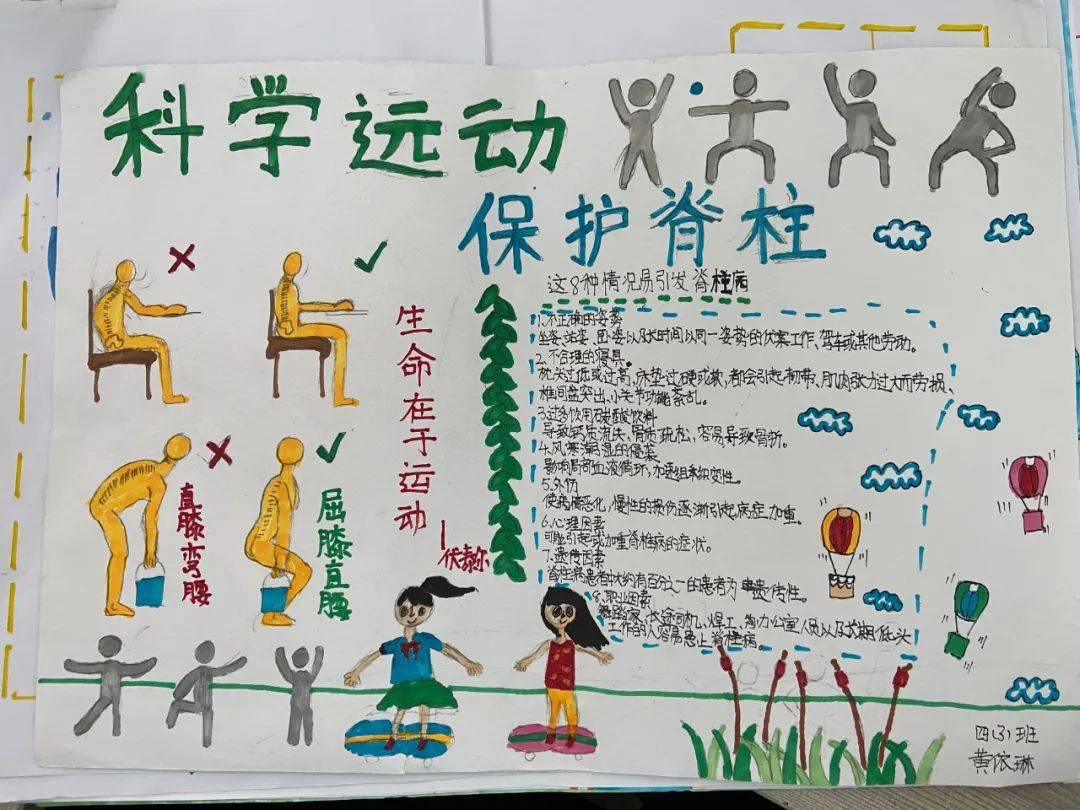 科学远动
保护脊柱
这8种情况易引发脊柱病
1.不正确的姿势
坐姿、站姿、卧姿以及长时间以同一姿势的伏案工作、驾车或其他劳动。
2.不合理的寝具。
枕头过低或过高,床垫过硬或软,都会引起韧带、肌肉张力过大而劳损、
椎间盘突出、小关节功能紊乱。
3.过多饮用碳酸饮料
导致钙质流失,骨质疏松,容易导致骨折。
4.风寒潮湿的侵袭
影响局部血液循环,加速组织变性。
5.外伤
使病情恶化,慢性的损伤逐渐引起病症加重。
6.心理因素
可能引起或加重脊椎病的症状。
7.遗传因素
脊柱病患者中大约有百分之一的患者为遗传性。
8.职业因素
舞蹈家、长途司机、焊工、办公室人员以及长期低头
工作的人容易患上脊椎病
生命在于运动
——伏泰尔
直膝弯腰
屈膝直腰
四(3)班
黄依琳